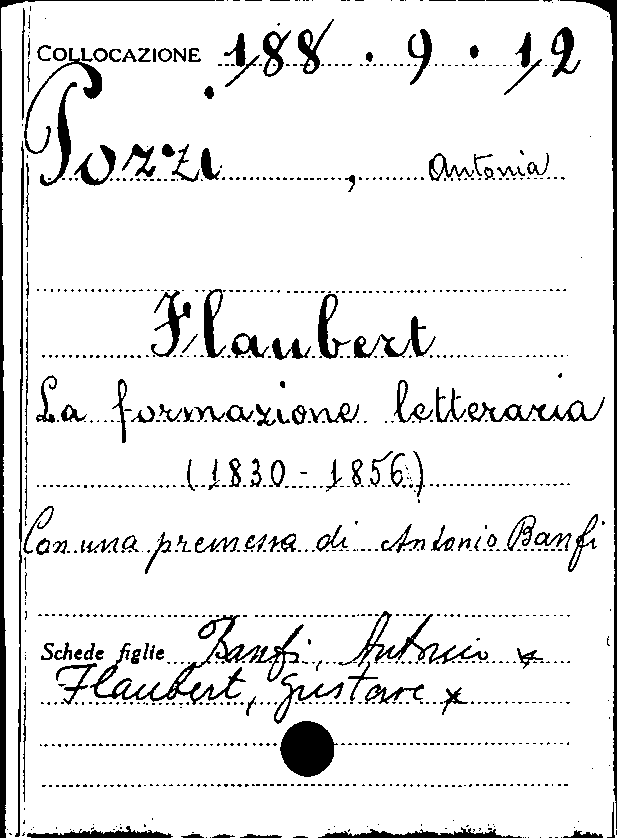 COLLOCAZIONE 188 . 9 . 12
Pozzi , Antonia
Flaubert
La formazione letteraria
(1830 - 1856)
Con una premessa di Antonio Banfi
Schede figlie Banfi, Antonio x
Flaubert, Gustave x